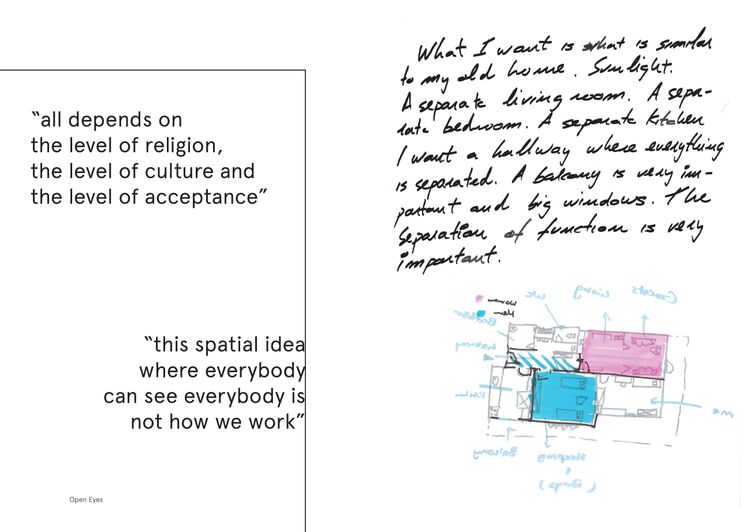 “all depends on
the level of religion,
the level of culture and
the level of acceptance”
“this spatial idea
where everybody
can see everybody is
not how we work”
Open Eyes
What I want is what is similar
to my old home. Sunlight.
A separate living room. A sepa-
rate bedroom. A separate Kitchen
I want a hallway where everything
is separated. A balcony is very im-
portant and big windows. The
separation of function is very
important.
Guests
Living
women
Men
Kitchen
me
Balcony
sleeping
(Boys)